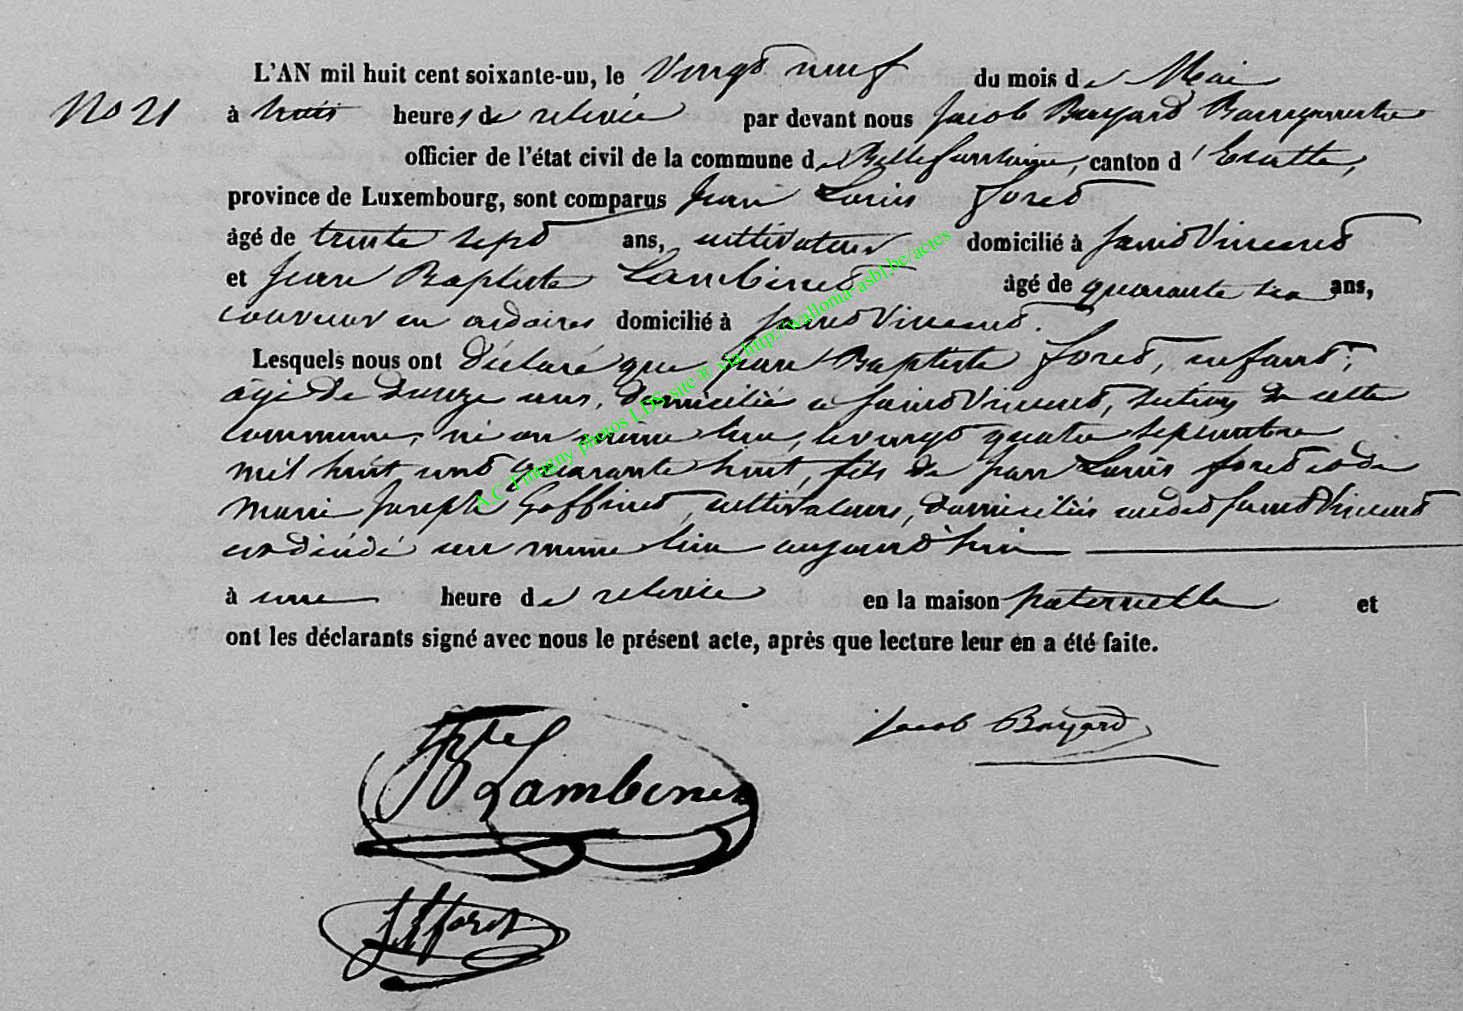 L'AN mil huit cent soixante-un, le Vingt neuf du mois de Mai
No 21 à trois heures de relevée par devant nous Jacob Bayard Bourgmestre
officier de l'état civil de la commune de Bellefontaine, canton d'Etalle,
province de Luxembourg, sont comparus Jean Louis foret
âgé de trente sept ans, cultivateur domicilié à saint Vincent
et Jean Baptiste Lambinet âgé de quarante six ans,
couvreur en ardoises domicilié à saint Vincent.
Lesquels nous ont déclaré que Jean Baptiste foret, enfant,
âgé de douze ans, domicilié à saint Vincent, section de cette
commune, né au même lieu, le vingt quatre septembre
mil huit cent quarante huit, fils de Jean Louis foret et de
Marie Joseph Goffinet, cultivateurs, domiciliés audit saint Vincent
est décédé au même lieu aujourd'hui
à une heure de relevée en la maison paternelle et
ont les déclarants signé avec nous le présent acte, après que lecture leur en a été faite.
Jacob Bayard
JBte Lambinet
JL foret
A.C Tintigny photos LDS site * via http://wallonia-asbl.be/actes